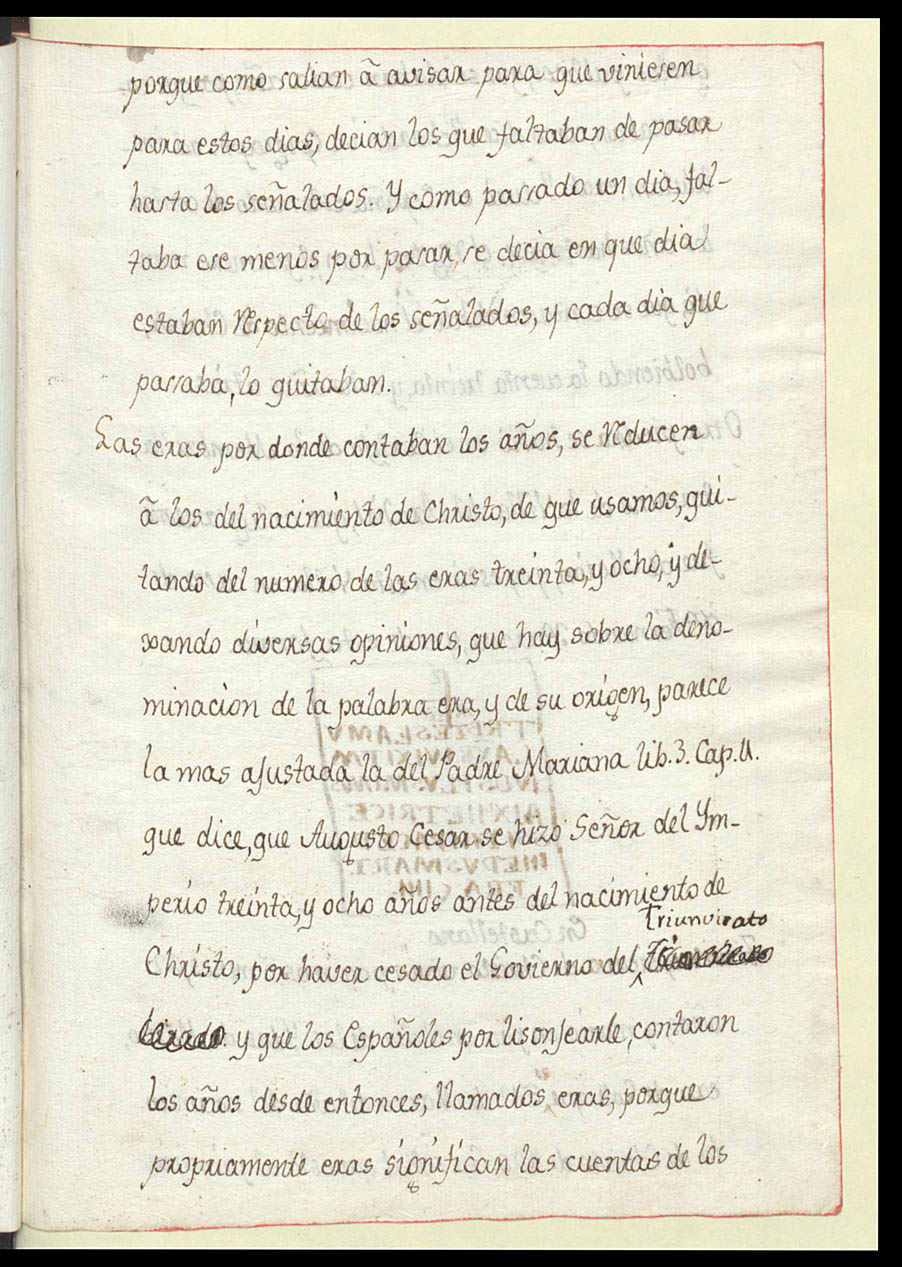 porque como salian ã avisar para que viniesen
para estos dias, decian los que faltaban de pasar
hasta los señalados. Y como passado un dia, fal-
taba ese menos por pasar, se decia en que dia
estaban Respecto de los señalados, y cada dia que
passaba, lo quitaban.
Las eras por donde contaban los años, se Reducen
ã los del nacimiento de Christo, de que usamos, qui-
tando del numero de las eras treinta, y ocho, y de-
xando diversas opiniones, que hay sobre la deno-
minacion de la palabra era, y de su origen, parece
la mas ajustada la del Padre Mariana lib. 3. Cap. U.
que dice, que Augusto Cesar se hizo Señor del Ym-
perio treinta, y ocho años antes del nacimiento de
Triunvirato
Christo, por haver cesado el Govierno del
y que los Españoles por lisonjearle, contaron
los años desde entonces, llamados eras, porque
propriamente eras significan las cuentas de los